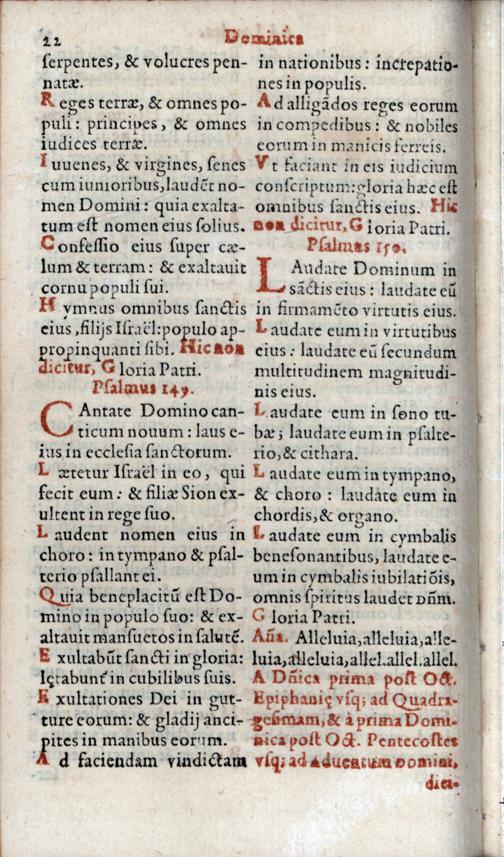 22
Dominica
serpentes, & volucres pen-
natæ.
Reges terræ, & omnes po-
puli: principes, & omnes
iudices terræ.
Iuuenes, & virgines, senes
cum iunioribus, laudēt no-
men Domini: quia exalta-
tum est nomen eius solius.
Confessio eius super cæ-
lum & terram: & exaltauit
cornu populi sui.
Hymnus omnibus sanctis
eius, filijs Israël: populo ap-
propinquanti sibi. Hic non
dicitur, Gloria Patri.
Psalmus 149.
CAntate Domino can-
ticum nouum: laus e-
ius in ecclesia sanctorum.
Lætetur Israël in eo, qui
fecit eum: & filiæ Sion ex-
ultent in rege suo.
Laudent nomen eius in
choro: in tympano & psal-
terio psallant ei.
Quia beneplacitū est Do-
mino in populo suo: & ex-
altauit mansuetos in salutē.
Exultabūt sancti in gloria:
lętabunt in cubilibus suis.
Exultationes Dei in gut-
ture eorum: & gladij anci-
pites in manibus eorum.
Ad faciendam vindictam
in nationibus: increpatio-
nes in populis.
Ad alligādos reges eorum
in compedibus: & nobiles
eorum in manicis ferreis.
Vt faciant in eis iudicium
conscriptum: gloria hæc est
omnibus sanctis eius. Hic
non dicitur, Gloria Patri.
Psalmus 150.
LAudate Dominum in
sāctis eius: laudate eū
in firmamēto virtutis eius.
Laudate eum in virtutibus
eius: laudate eū secundum
multitudinem magnitudi-
nis eius.
Laudate eum in sono tu-
bæ; laudate eum in psalte-
rio, & cithara.
Laudate eum in tympano,
& choro: laudate eum in
chordis, & organo.
Laudate eum in cymbalis
benesonantibus, laudate e-
um in cymbalis iubilatiōis,
omnis spiritus laudet Dñm.
Gloria Patri.
Aña. Alleluia, alleluia, alle-
luia, alleluia, allel. allel. allel.
A Dñica prima post Oct.
Epiphanię vsq; ad Quadra-
gesimam, & à prima Domi-
nica post Oct. Pentecostes
vsq; ad Aduentum Domini,
dici-